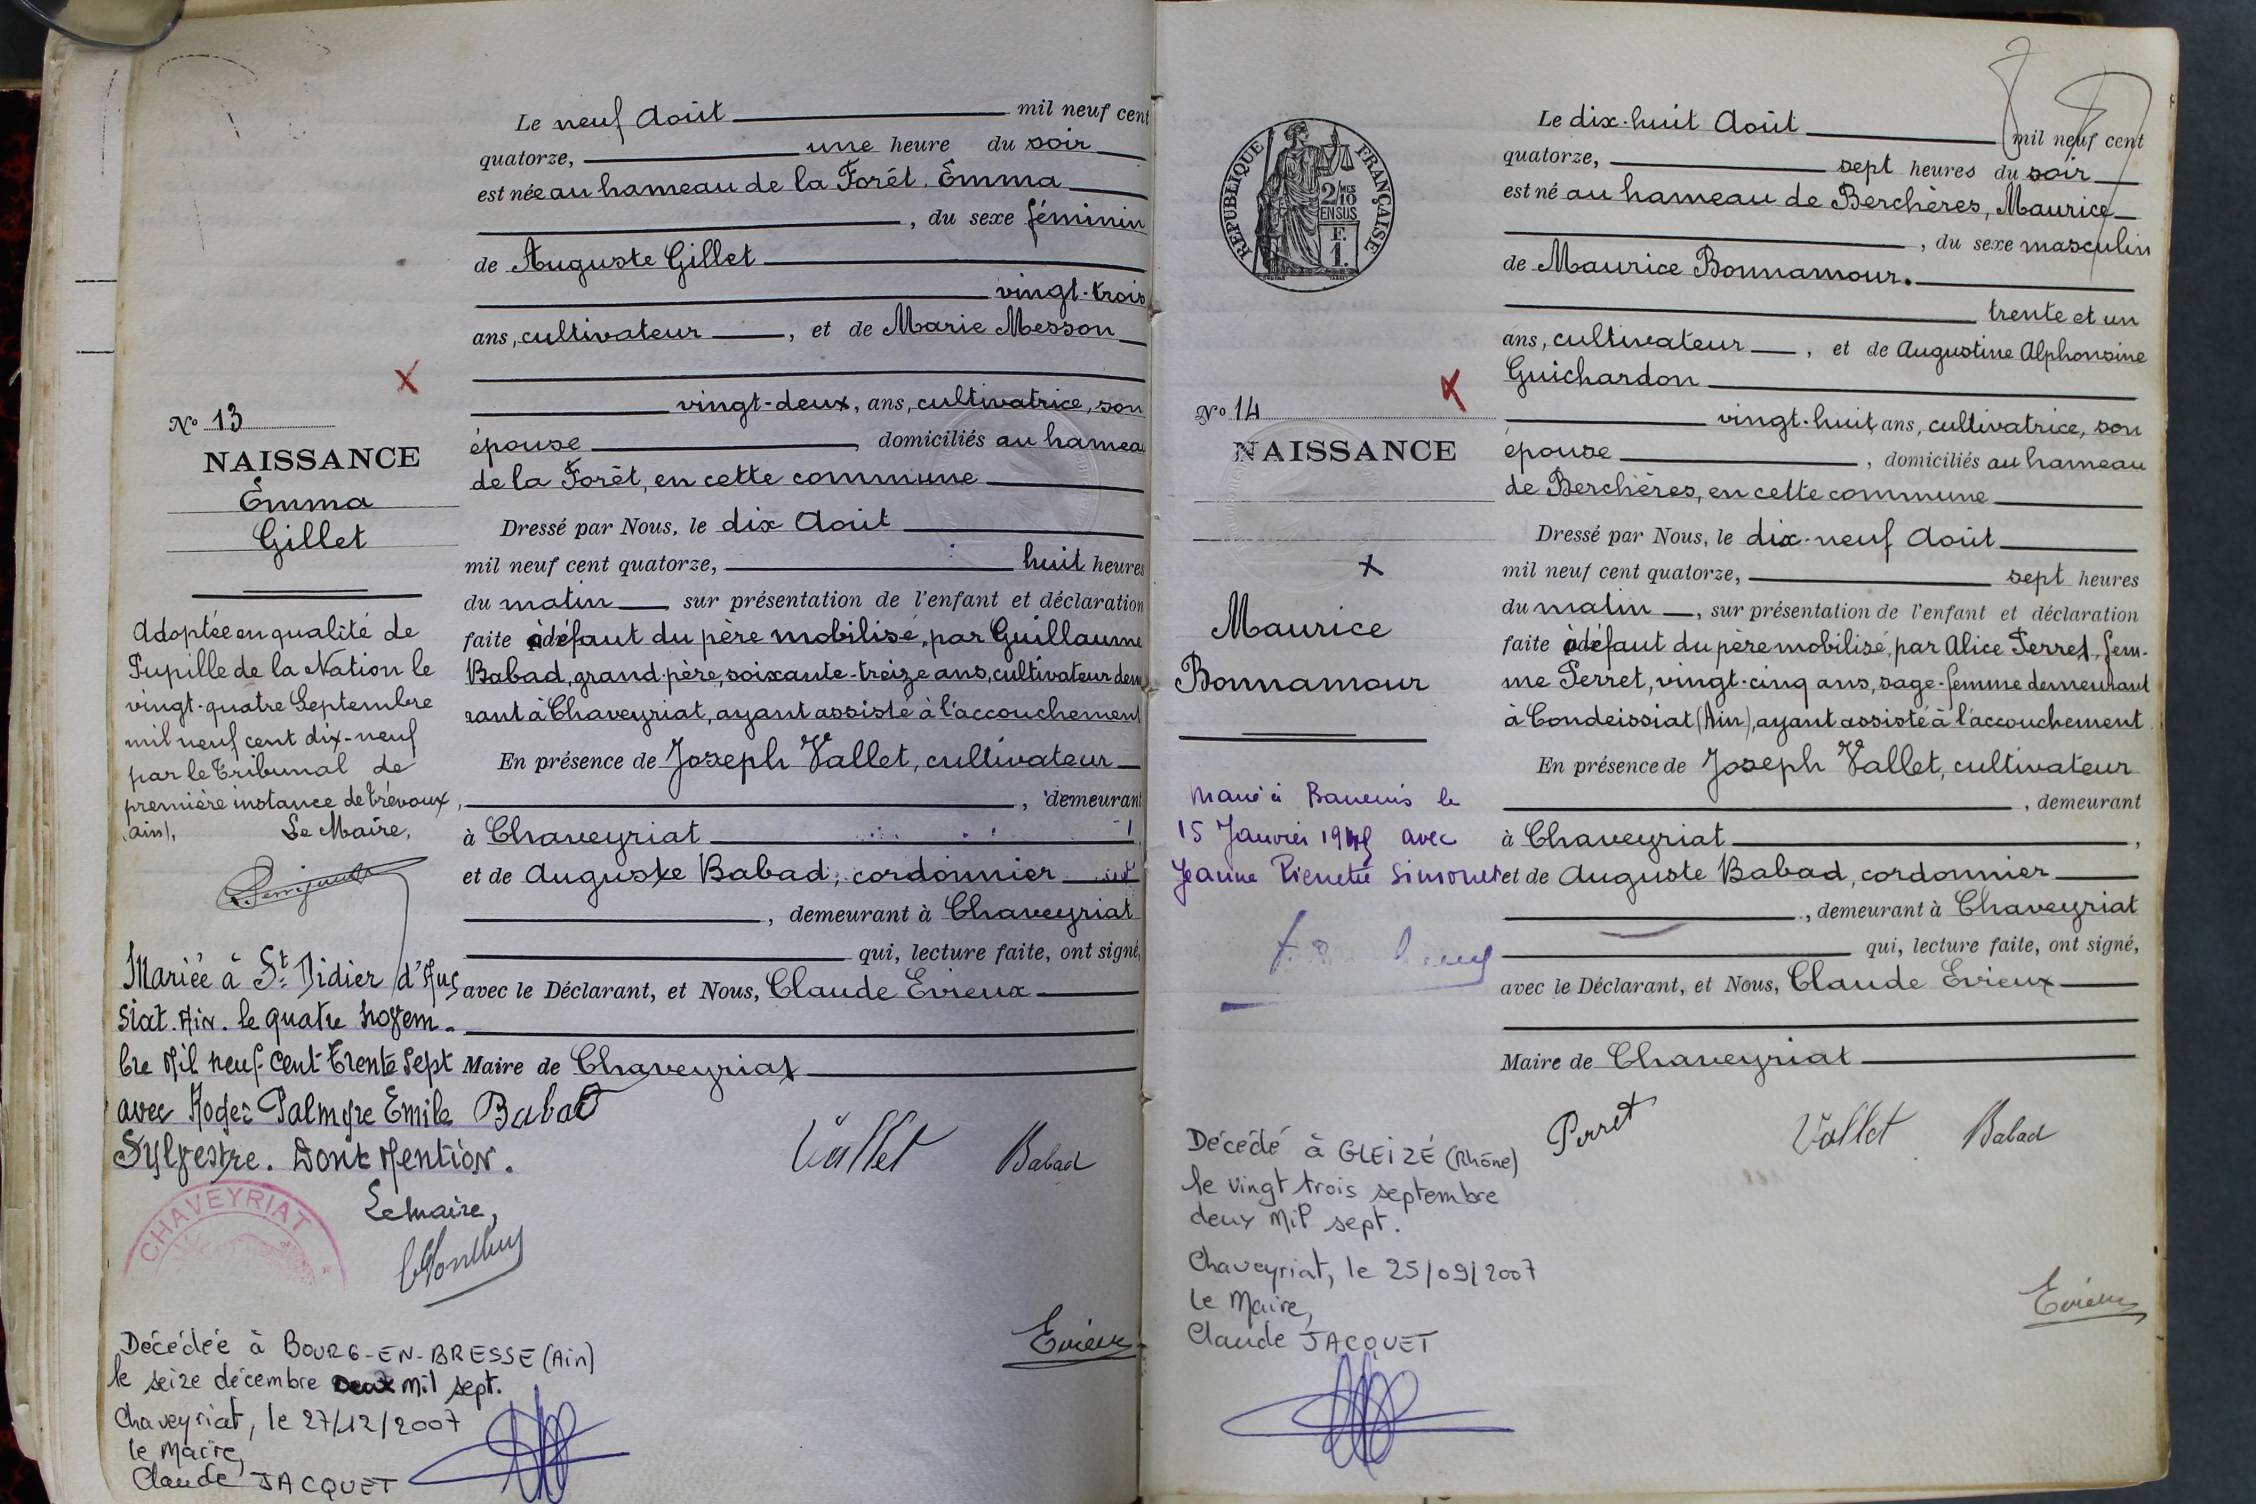 Le neuf Août mil neuf cent
quatorze, une heure du soir
est née au hameau de la Forêt, Emma
, du sexe féminin
de Auguste Gillet
vingt-trois
ans, cultivateur , et de Marie Messon
vingt-deux, ans, cultivatrice, son
épouse , domiciliés au hameau
de la Forêt, en cette commune
Dressé par Nous, le dix Août
mil neuf cent quatorze, huit heures
du matin sur présentation de l'enfant et déclaration
faite à défaut du père mobilisé, par Guillaume
Babad, grand-père, soixante-treize ans, cultivateur demeu
rant à Chaveyriat, ayant assisté à l'accouchement
En présence de Joseph Vallet, cultivateur
, demeurant
à Chaveyriat
et de Auguste Babad, cordonnier
, demeurant à Chaveyriat
qui, lecture faite, ont signé,
avec le Déclarant, et Nous, Claude Evieux
Maire de Chaveyriat
Babad
Vallet Babad
Evieux
No 13
NAISSANCE
Emma
Gillet
Adoptée en qualité de
Pupille de la Nation le
vingt-quatre Septembre
mil neuf cent dix-neuf
par le Tribunal de
première instance de Trévoux,
(Ain). Le Maire,
Mariée à St Didier d'Aus
siat. Ain. le quatre novem-
bre Mil neuf-Cent-Trente Sept
avec Roger Palmyre Emile
Sylvestre. Dont Mention.
Le Maire,
CHAVEYRIAT
Décédée à BOURG-EN-BRESSE (Ain)
le seize décembre Deux mil sept.
Chaveyriat, le 27/12/2007
le Maire,
Claude JACQUET
REPUBLIQUE FRANÇAISE
2/MES
10
EN SUS
F.
1.
Le dix-huit Août mil neuf cent
quatorze, sept heures du soir
est né au hameau de Berchères, Maurice
, du sexe masculin
de Maurice Bonnamour.
trente et un
ans, cultivateur , et de Augustine Alphonsine
Guichardon
vingt-huit ans, cultivatrice, son
épouse , domiciliés au hameau
de Berchères, en cette commune
Dressé par Nous, le dix-neuf Août
mil neuf cent quatorze, sept heures
du matin , sur présentation de l'enfant et déclaration
faite à défaut du père mobilisé, par Alice Perret, fem-
me Perret, vingt-cinq ans, sage-femme demeurant
à Condeissiat (Ain), ayant assisté à l'accouchement
En présence de Joseph Vallet, cultivateur
, demeurant
à Chaveyriat ,
et de Auguste Babad, cordonnier
, demeurant à Chaveyriat
qui, lecture faite, ont signé,
avec le Déclarant, et Nous, Claude Evieux
Maire de Chaveyriat
Perret Vallet Babad
Evieux
No 14
NAISSANCE
Maurice
Bonnamour
Marié à le
15 Janvier avec
Jeanne Pierrette Simonet
Décédé à GLEIZÉ (Rhône)
le vingt trois septembre
deux mil sept.
Chaveyriat, le 25/09/2007
le Maire,
Claude JACQUET